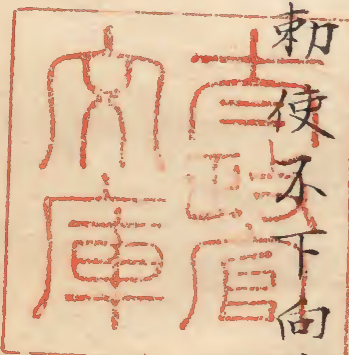 勅使不下向
太政官
文庫